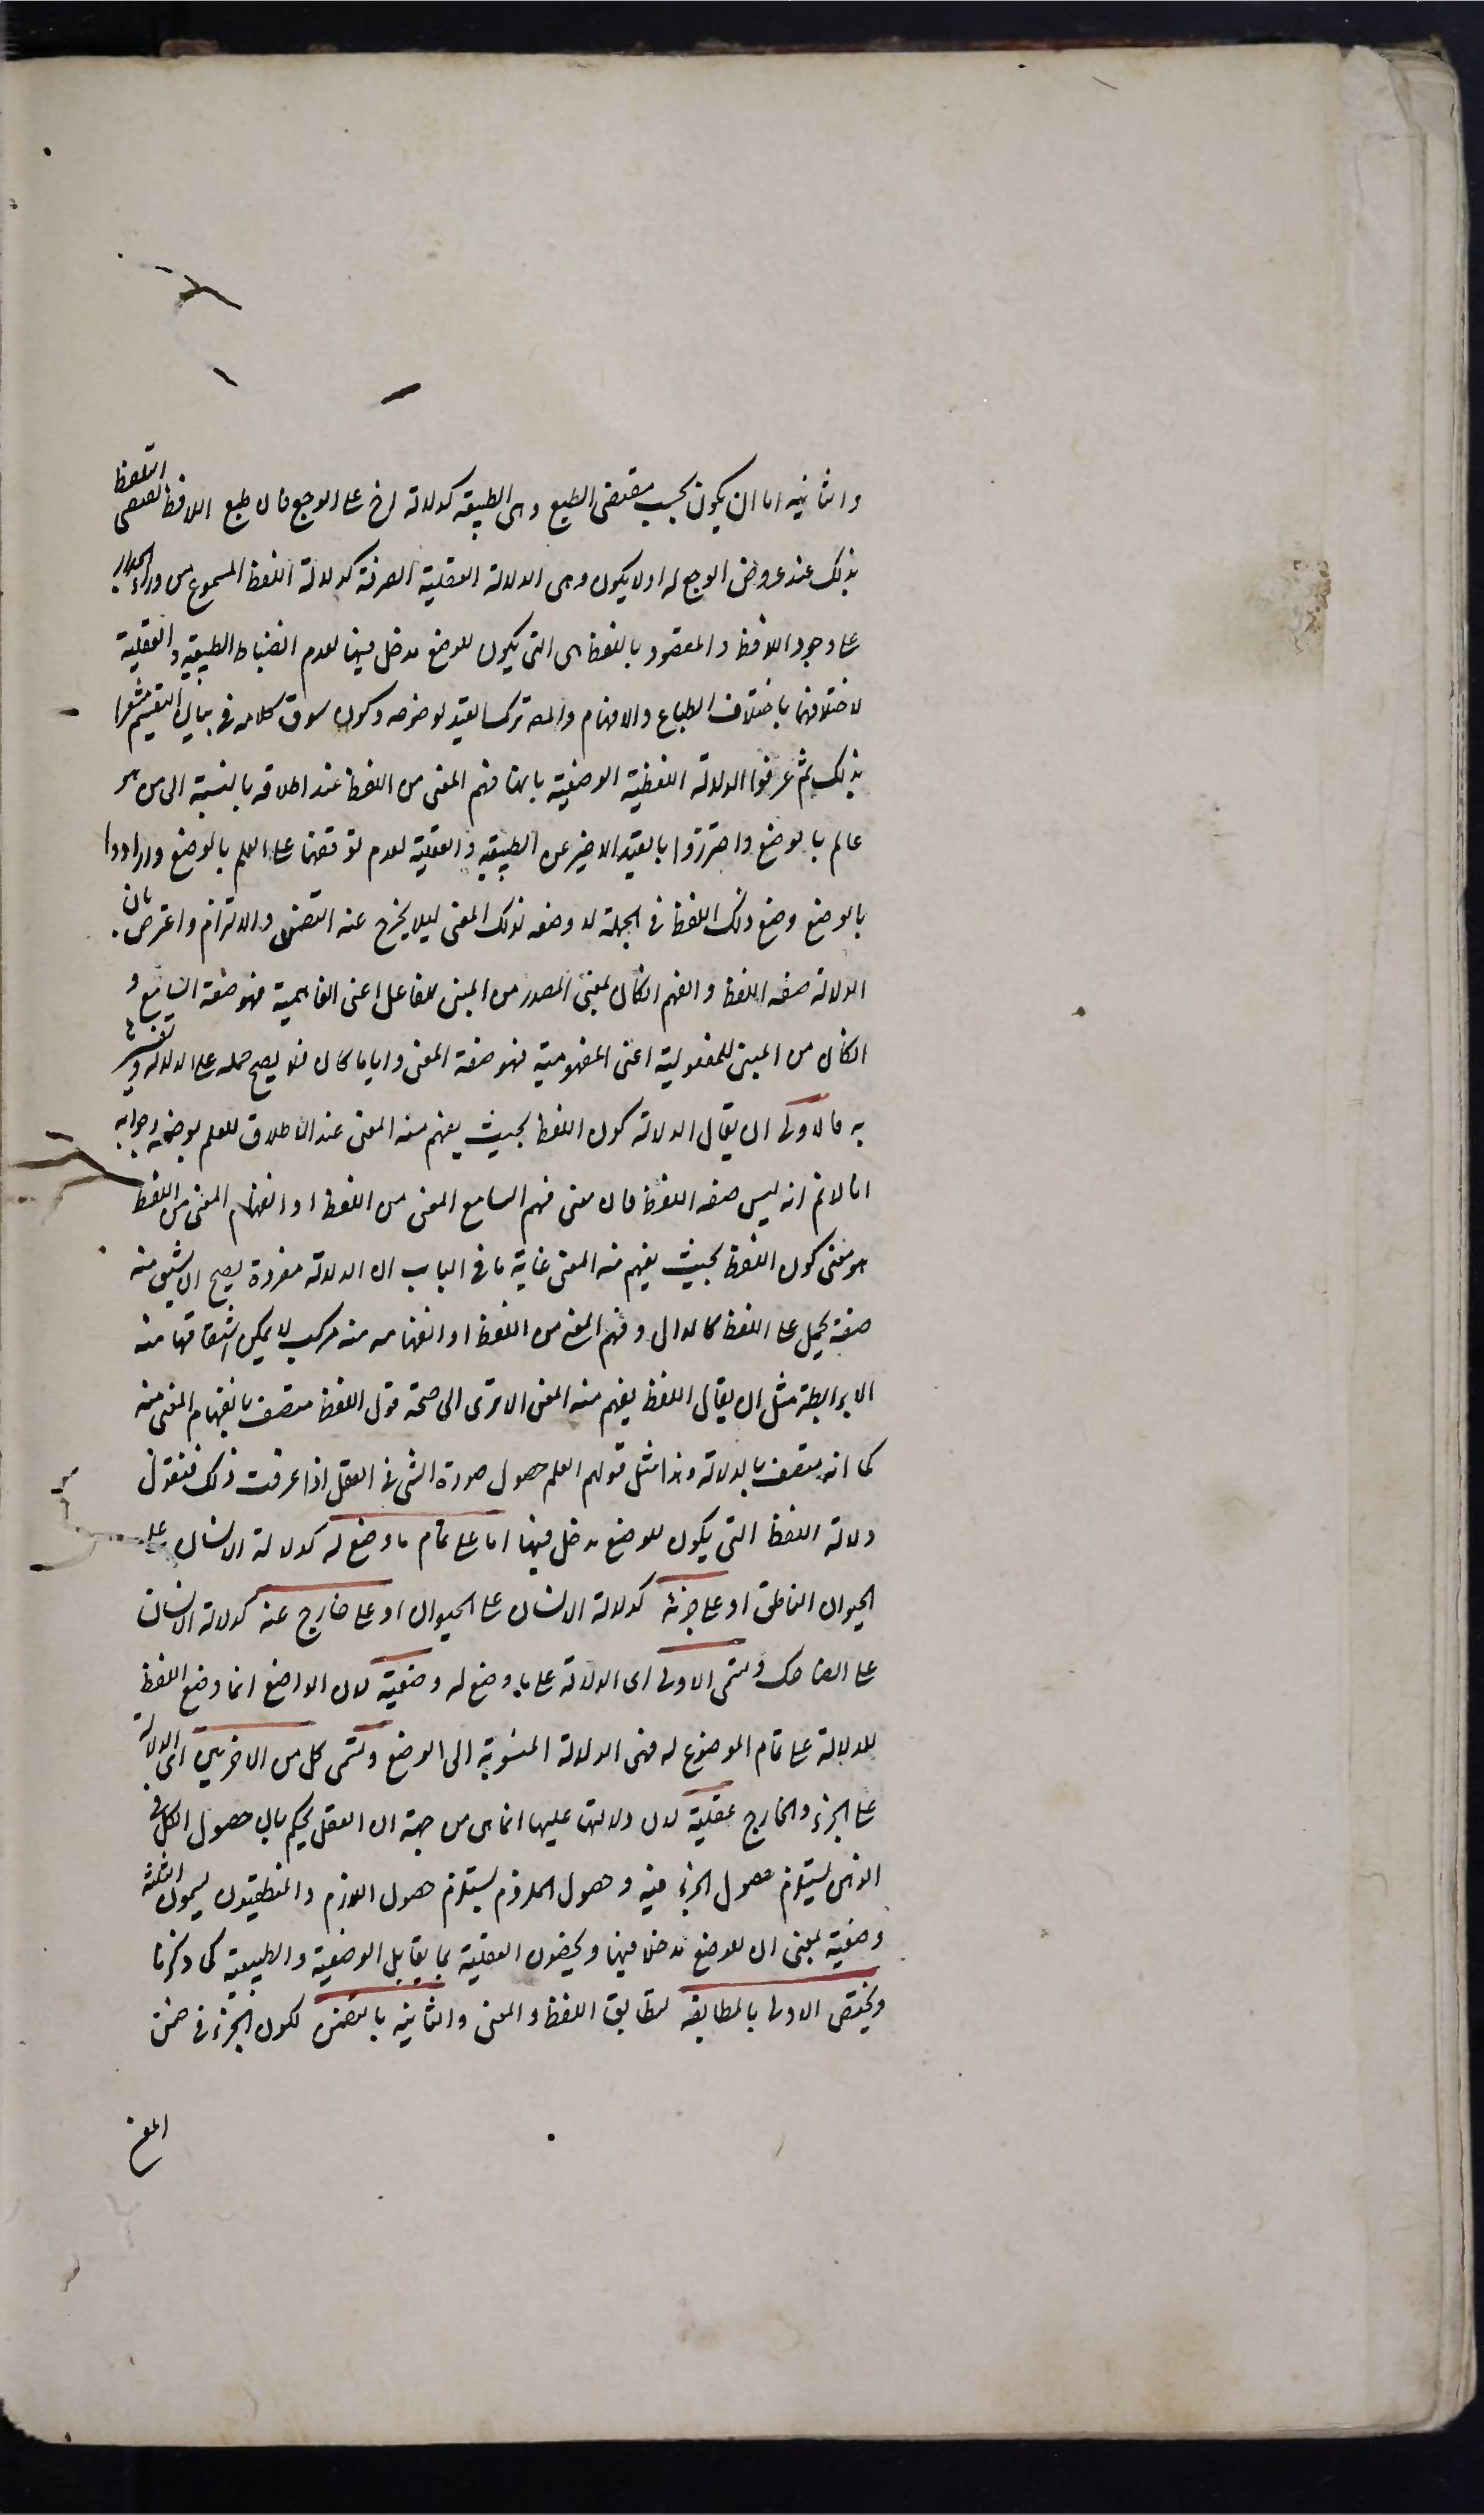 والثانية اما ان يكون بحسب مقتضى الطبع وهى الطبيعية كدلالة اخ على الوجع فان طبع اللافظ يقتضى التلفظ
بذلك عند عروض الوجع له اولا يكون وهى الدلالة العقلية الصرفة كدلالة اللفظ المسموع من وراء الجدار
على وجود اللافظ والمقصود بالنظر هى التى يكون للوضع مدخل فيها لعدم انضباط الطبيعية والعقلية
لاختلافهما باختلاف الطباع والافهام والمص ترك القيد لوضوحه وكون سوق كلامه فى بيان التقسيم مشعرا
بذلك ثم عرفوا الدلالة اللفظية الوضعية بانها فهم المعنى من اللفظ عند اطلاقه بالنسبة الى من هو
عالم بالوضع واحترزوا بالقيد الاخير عن الطبيعية والعقلية لعدم توقفهما على العلم بالوضع وارادوا
بالوضع وضع ذلك اللفظ فى الجملة لا وضعه لذلك المعنى ليلا يخرج عنه التضمن والالتزام واعترض بان
الدلالة صفه اللفظ والفهم ان كان بمعنى المصدر من المبنى للفاعل اعنى الفاهمية فهو صفة السامع و
ان كان من المبنى للمفعولية اعنى المفهومية فهو صفة المعنى وايا ما كان فلا يصح حمله على الدلالة وتفسيرها
به فالاولى ان يقال الدلالة كون اللفظ بحيث يفهم منه المعنى عند الاطلاق للعلم بوضعه وجوابه
انا لانم انه ليس صفه اللفظ فان معنى فهم السامع المعنى من اللفظ او انفهام المعنى من اللفظ
هو معنى كون اللفظ بحيث يفهم منه المعنى غاية ما فى الباب ان الدلالة مفردة يصح ان يشتق منه
صفة يحمل على اللفظ كالدال وفهم المعنى من اللفظ او انفهامه منه مركب لا يمكن اشتقاقها منه
الا برابطة مثل ان يقال اللفظ يفهم منه المعنى الا ترى الى صحة قول اللفظ متصف بانفهام المعنى منه
كما انه متصف بالدلالة وهذا مثل قولهم العلم حصول صورة الشى فى العقل اذا عرفت ذلك فنقول
دلالة اللفظ التى يكون للوضع مدخل فيها اما على تمام ما وضع له كدلالة الانسان على
الحيوان الناطق او على جزئه كدلالة الانسان على الحيوان او على خارج عنه كدلالة الانسان
على الضاحك وتسمى الاولى اى الدلالة على ما وضع له وضعية لان الواضع انما وضع اللفظ
للدلالة على تمام الموضوع له فهى الدلالة المنسوبة الى الوضع وتسمى كل من الاخريين اى الدلالة
على الجزء والخارج عقلية لان دلالته عليها انما هى من جهة ان العقل يحكم بان حصول الكل فى
الذهن يستلزم حصول الجزء فيه وحصول الملزوم يستلزم حصول اللازم والمنطقيون يسمون الثلثة
وضعية بمعنى ان للوضع مدخلا فيها ويخصون العقلية بما يقابل الوضعية والطبيعية كما ذكرنا
ويختص الاولى بالمطابقه لتطابق اللفظ والمعنى والثانية بالتضمن لكون الجزء فى ضمن
المعنى